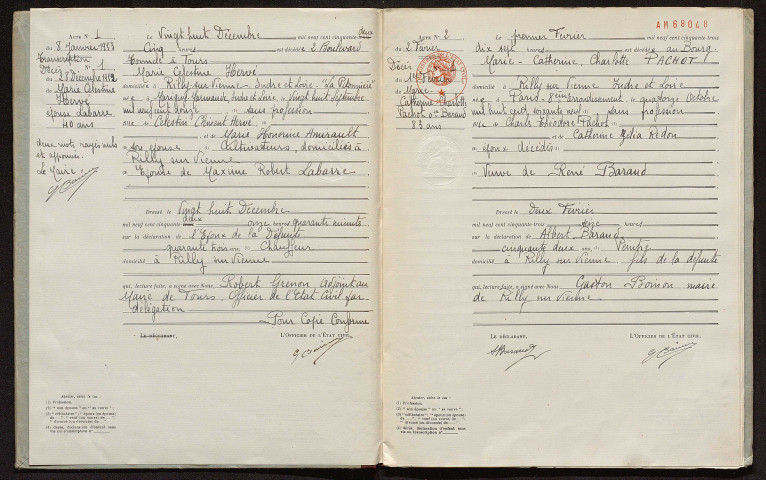 ACTE N° 1
du 8 Janvier 1953
Transcription
Décès N° 1
du 28 Décembre 1952
de Marie Célestine
Hervé
épouse Labarre
40 ans
deux mots rayés nuls
et approuvés.
Le Maire,
Le Vingt huit Décembre mil neuf cent cinquante deux
Cinq heures est décédée 2 Boulevard
Tonnellé à Tours
Marie Célestine Hervé
domiciliée à Rilly-sur-Vienne Indre et Loire "La
née à Marigny-Marmande, Indre et Loire, le Vingt huit Septembre
mil neuf cent douze sans profession
fille de Célestin Clément Hervé
et de Marie Honorine
son épouse Cultivateurs, domiciliés à
Rilly sur Vienne
Epouse de Maxime Robert Labarre
Dressé le Vingt huit Décembre
mil neuf cent cinquante deux onze heures quarante minutes
sur la déclaration de l'Epoux de la Défunte
quarante trois ans, Chauffeur
domicilié à Rilly sur Vienne
qui, lecture faite, a signé avec Nous Robert Grenon Adjoint au
Maire de Tours, Officier de l'Etat Civil par
délégation
Pour Copie Conforme
LE DÉCLARANT, L'OFFICIER DE L'ÉTAT CIVIL,
Annuler, selon le cas :
(1) Profession.
(2) "son épouse" ou "sa veuve".
AM68048
ACTE N° 2
du 2 Février
Décès N°
du 1er Février
de Marie-
Catherine Charlotte
Pachot Ve Baraud
83 ans
Le premier Février mil neuf cent cinquante-trois
dix sept heures est décédée au Bourg
Marie-Catherine, Charlotte PACHOT
domiciliée à Rilly sur Vienne Indre et Loire
née à Paris-8ème Arrondissement le quatorze Octobre
mil huit cent soixante neuf sans profession
fille de Charles Théodore Pachot
et de Catherine Zélia Redon
époux décédés
Veuve de René Baraud
Dressé le Deux Février
mil neuf cent cinquante-trois seize heures
sur la déclaration de Albert Baraud
cinquante deux ans, Peintre
domicilié à Rilly sur Vienne, fils de la défunte
qui, lecture faite, a signé avec Nous Gaston maire
de Rilly sur Vienne
LE DÉCLARANT, L'OFFICIER DE L'ÉTAT CIVIL,
Annuler, selon le cas :
(1) Profession.
(2) "son épouse" ou "sa veuve".